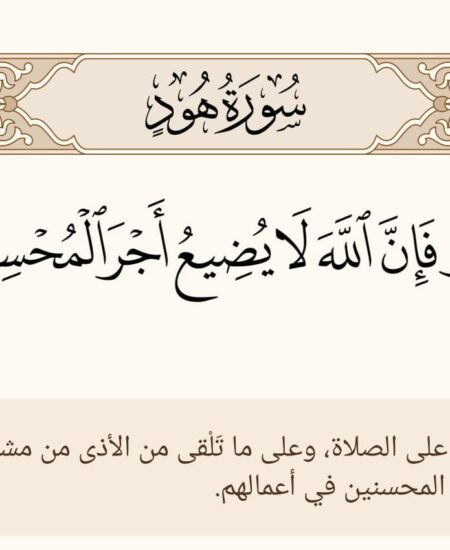 سُورَةُ هُودٍ
فَإِنَّ ٱللَّهَ لَا يُضِيعُ أَجْرَ ٱلْمُحْسِ
على الصلاة، وعلى ما تَلْقى من الأذى من مش
المحسنين في أعمالهم.